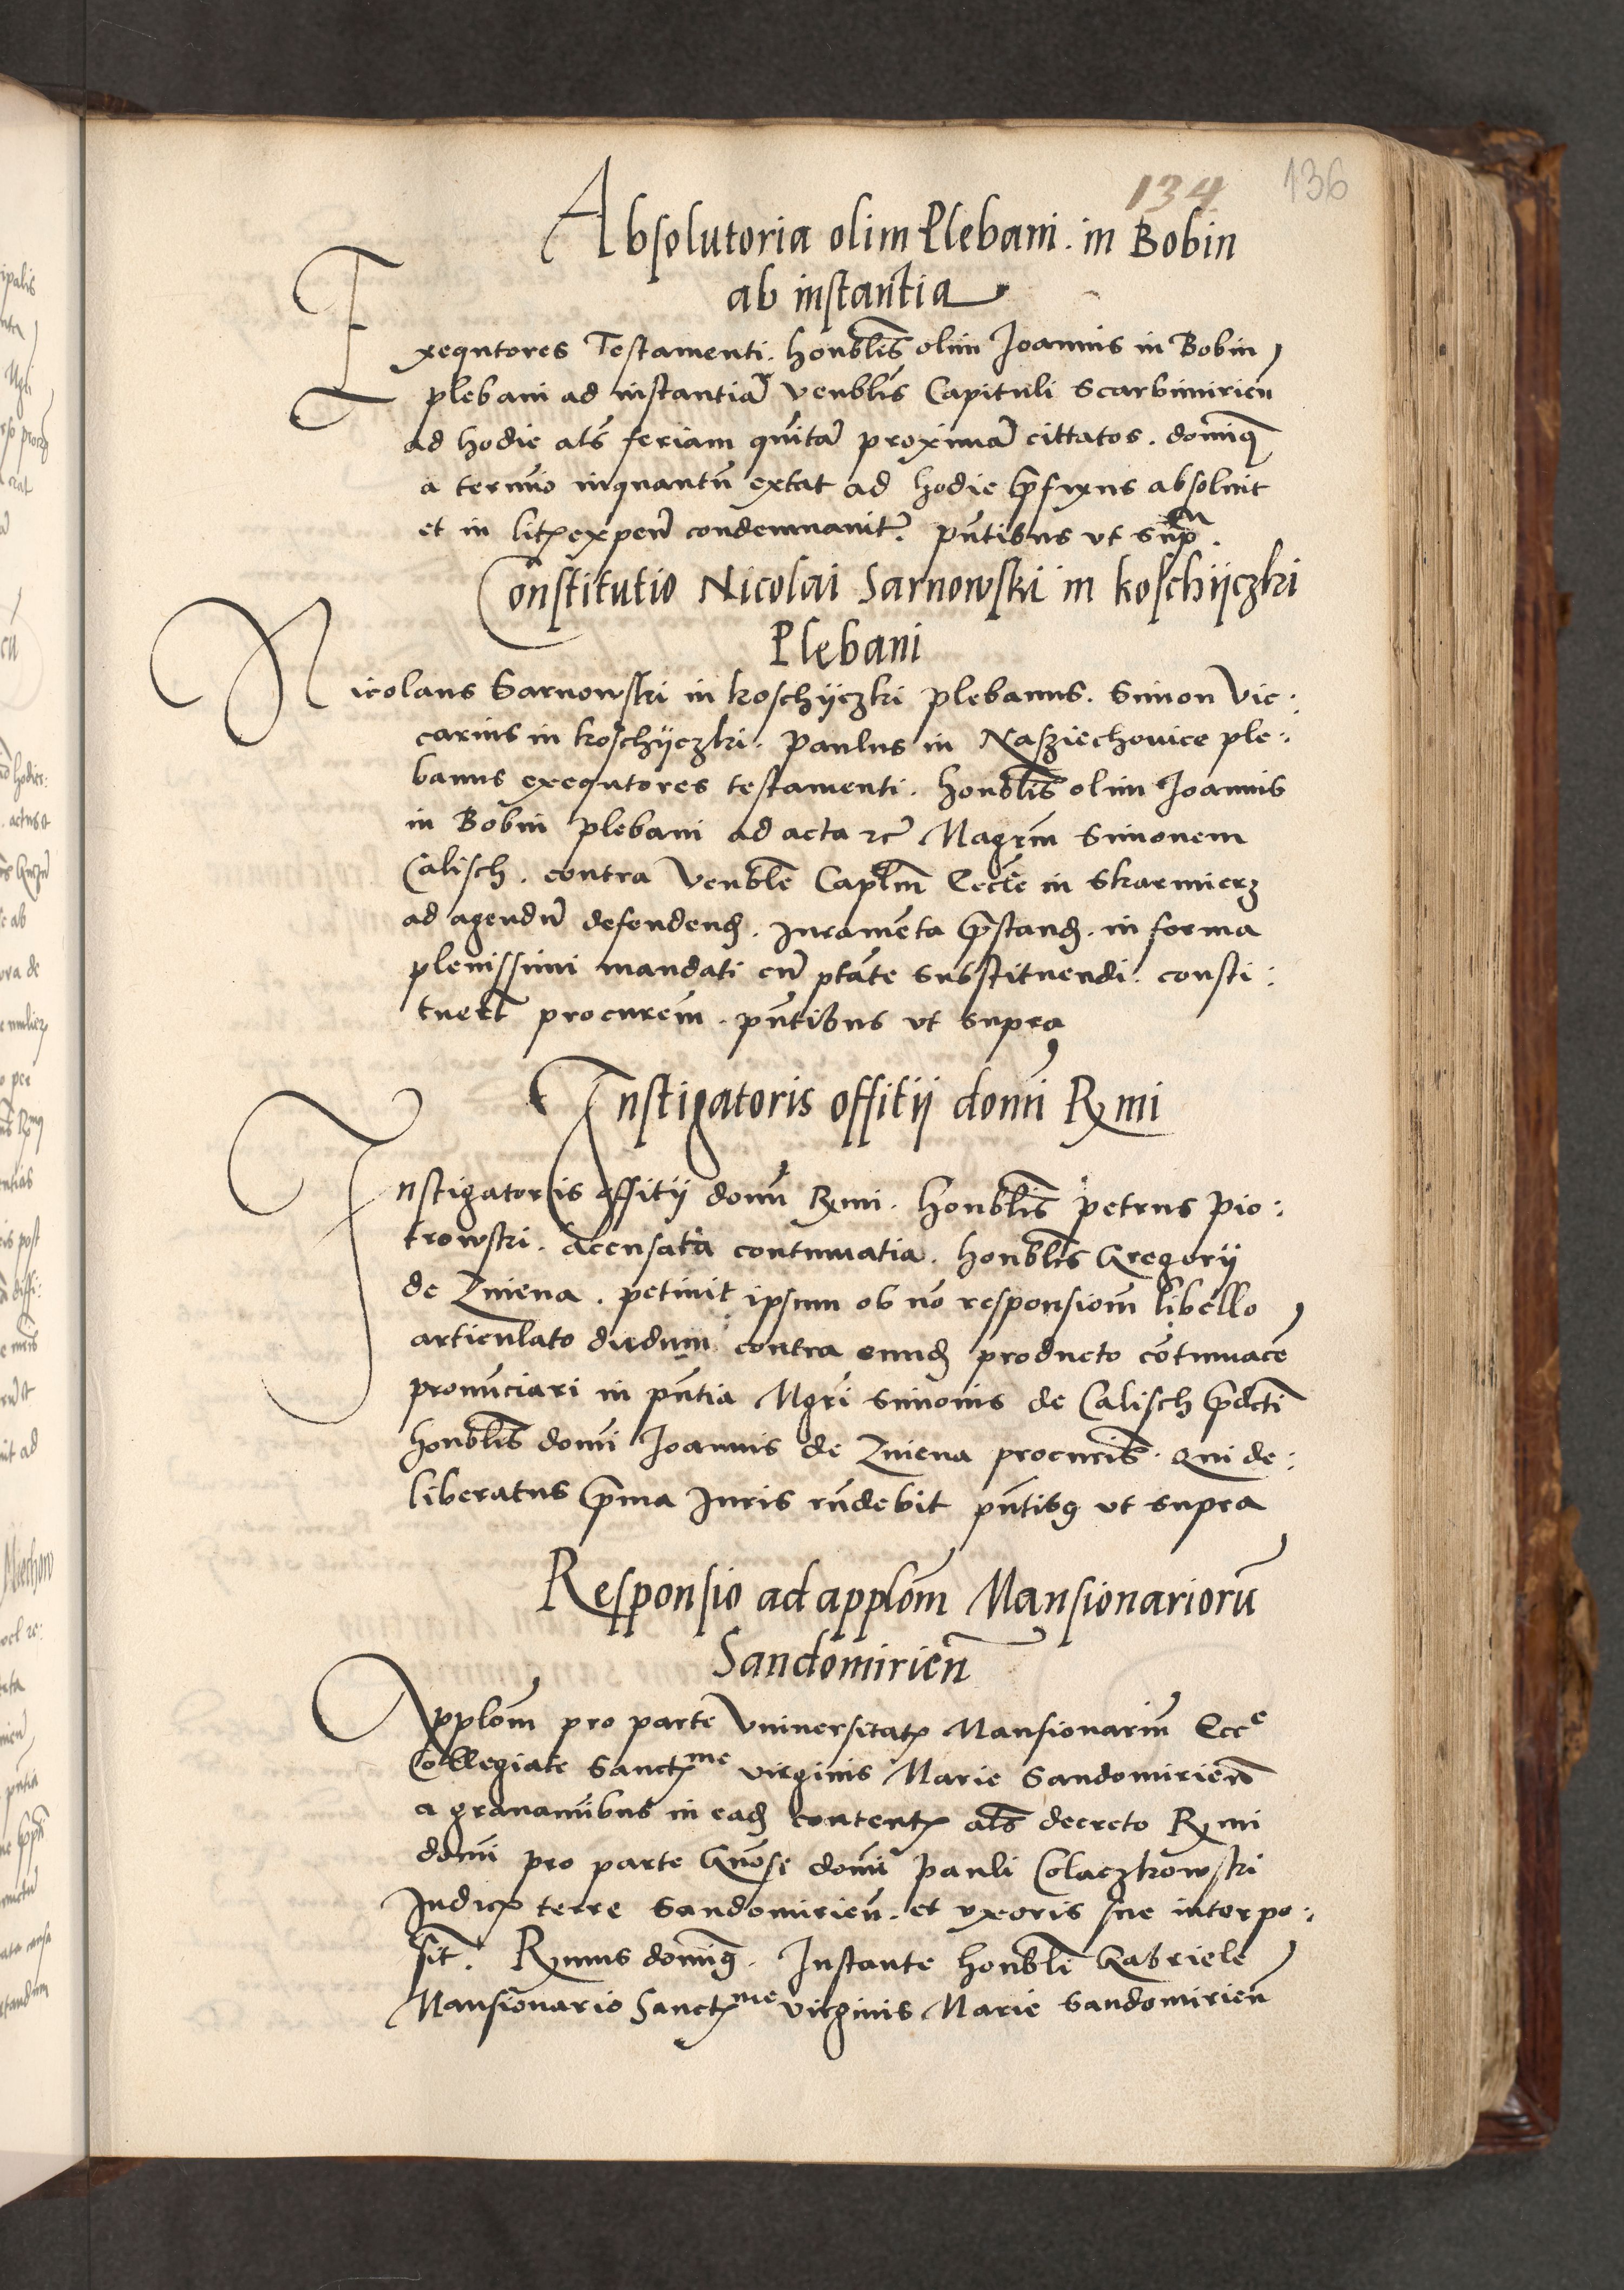 134 136
Absolutoria olim Plebani in Bobin
ab instantia
Exequtores Testamenti. honblis olim Joannis in Bobin
plebani ad instantiā venblis Capituli Scarbimirien
ad hodie als feriam quītā proximā cittatos. dominꝫ
a termīo inquantū extat ad hodie p̄fixus absoluit
et in litꝭ expeñ condemnauit. pn̄tibus vt sup̄.
Constitutio Nicolai Sarnowski in koschijczki
Plebani
Nicolaus Sarnowski in koschijczki plebanus. Simon Vic:
carius in koschijczki. Paulus in Nasziechovice ple:
banus exequtores testamenti. honblis olim Joannis
in Bobin plebani ad acta ꝛc̄ Magrm̄ Simonem
Calisch. contra Venblē Caplm̄ Eccl̄e in Skarmierz
ad agendū defendenꝺ. Juramēta p̄standꝺ. in forma
plenissimi mandati cū ptāte substituendi. consti:
tuert procurem̄. pn̄tibus vt supra
Instigatoris offitij domī Rmi
Instigatoris offitij domī Rmi. honblis petrus Pio:
trowski. Accusata contumatia. honblis Gregorij
de Zniena. petiuit ipsum ob nō responsiom̄ libello
articulato dudum contra eundꝫ producto cōtumacē
pronūciari in pn̄tia Mgri simonis de Calisch p̄dcti
honblis domī Joannis de Zniena procuris. Qui de:
liberatus p̄ma Juris rn̄debit pn̄tibꝫ vt supra
Responsio ad applom̄ Mansionariorū
Sandomirieñ
Applom̄ pro parte Vniuersitatꝭ Mansionariū Eccᵉ
Collegiate Sanctꝭᵐᵉ virginis Marie Sandomirieñ
a grauamībus in eadꝫ contentꝭ als decreto Rmi
domī pro parte Gnosi domī Pauli Colaczkowski
Judicꝭ terre Sandomirieñ. et vxoris sue interpo:
sit. Rmus dominꝫ. Instante honblī Gabriele
Mansionario Sanctꝭᵐᵉ virginis Marie Sandomirieñ